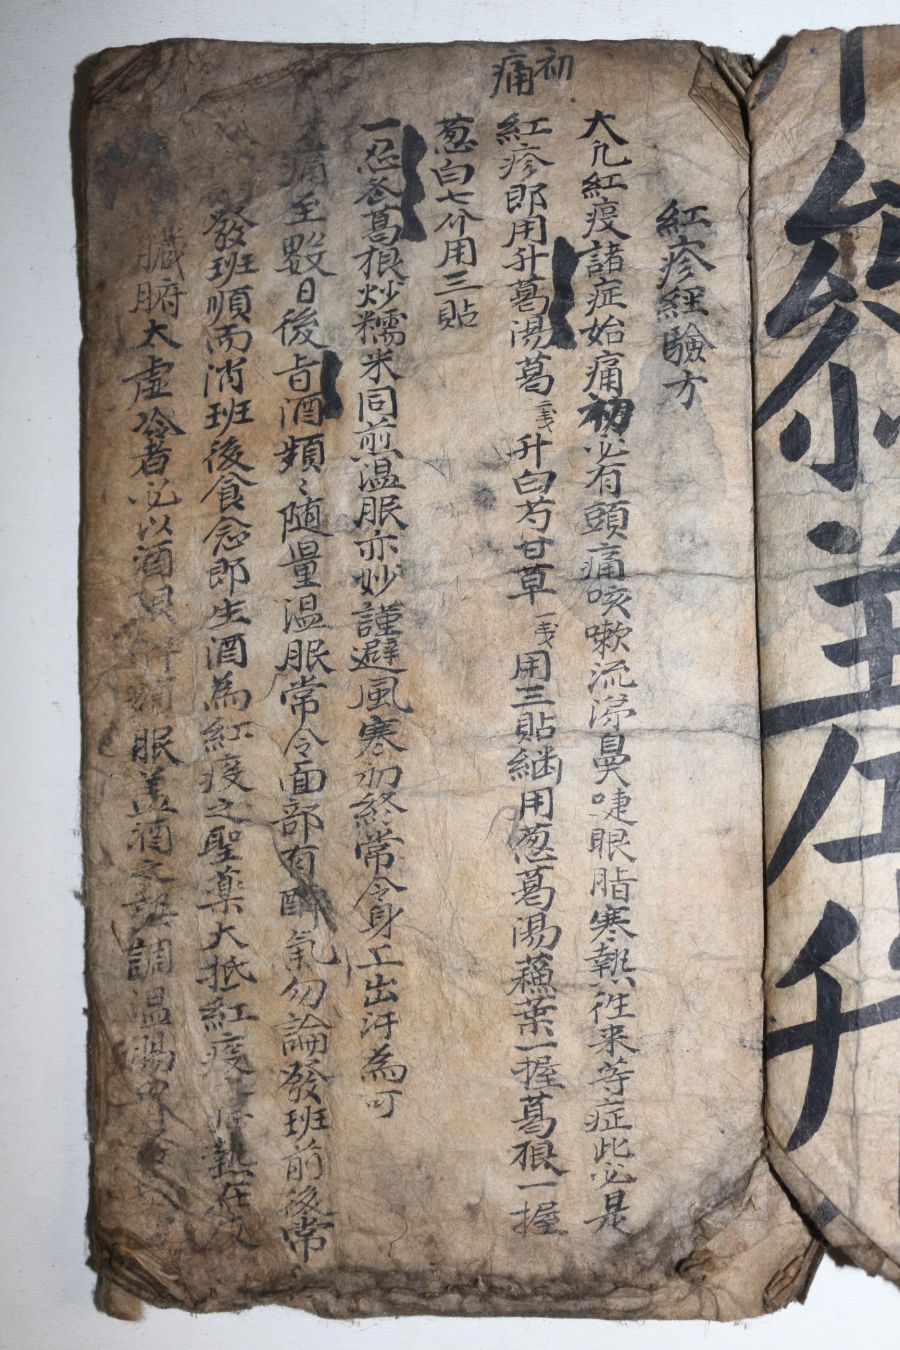 紅疹經驗方
大凡紅疫諸症始痛初必有頭痛咳嗽流涕鼻啑眼脂寒熱徃来等症此必是
初痛
紅疹即用升葛湯葛二戔升白芍甘草一戔用三貼継用葱葛湯蘓葉一握葛根一握
葱白七介用三貼
一忍冬葛根炒糯米同煎温服亦妙謹避風寒初終常令身上出汗為可
痛至數日後旨酒頻〻随量温服常令面部有醉氣勿論發班前後常
發班順而消班後食念即生酒為紅疫之聖藥大抵紅疫熱在
臟腑大虛冷者必以酒服盖酒之調温腸胃